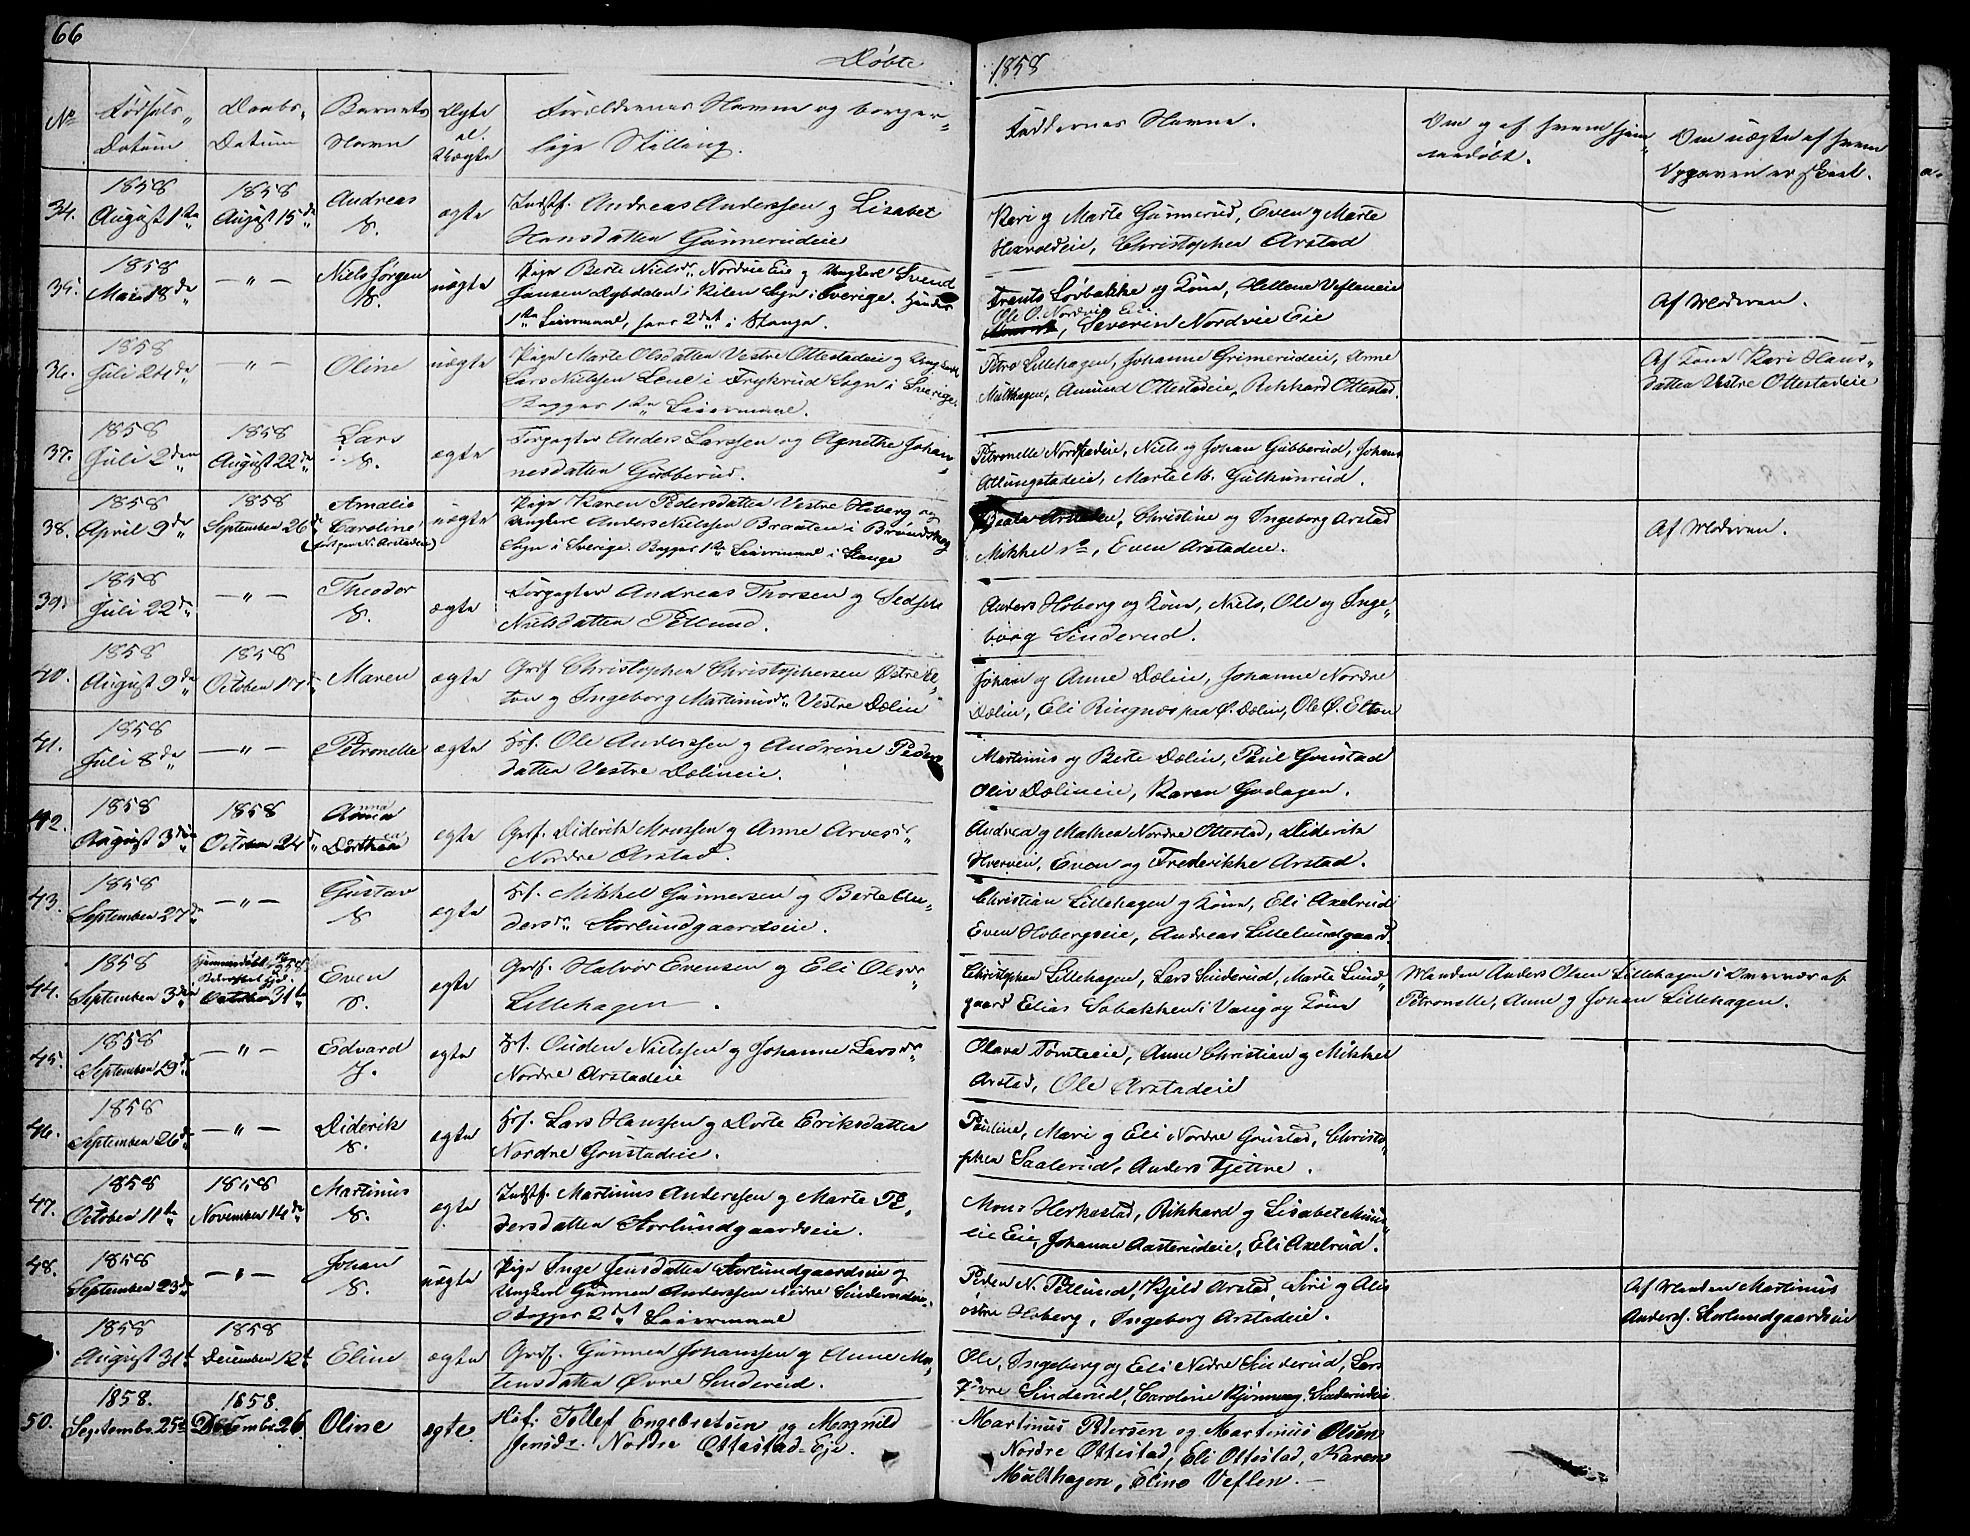 66
Døbte
1858
No
Fødsels-
Datum
Daabs-
Datum
Barnets
Navn
Ægte
el.
Uægte
Forældrenes Navne og borger-
lige Stilling.
Faddernes Navne.
Om og af hvem hjem-
medøbt.
Om uægte af hvem
Opgaven er skeet.
34.
1858
August 1ste
1858
August 15de
Andreas
8.
ægte
Indstf. Andreas Anderssen og Lisabet
Hansdatter Gunnerudeie
Kari og Marte Gunnerud, Even og Marte
Hværoldeie, Christopher Arstad
35.
1858
Mai 18de
— " —
Niels Jørgen
8.
uægte
Pige Berte Nielsdr. Nordvie Eie og Ungkarl Svend
Jansen i Kilen Sogn i Sverige. Hendes
1ste Leiermaal, hans 2det i Stange.
Frants Løvbakke og Kone, Hellene Vefleneie
Ole O. Nordvie Eie.
Severin Nordvie Eie
Af Moderen.
36.
1858
Juli 24de
— " —
Oline
uægte
Pige Marte Olsdatter Vestre Ottestadeie og Ungkarl
Lars Nielssen Lene i Frykerud Sogn i Sverige.
Begges 1ste Leiermaal.
Petra Lillehagen, Johanne Grimerudeie, Arne
Multhagen, Amund Ottestadeie, Rikhard Ottestad.
Af Kone Kari Hans-
datter Vestre Ottestadeie
37.
1858
Juli 2den
1858
August 22de
Lars
8.
ægte
Forpagter Anders Larssen og Agnethe Johan-
nesdatter Gubberud.
Petronelle Nordstadeie, Niels og Johan Gubberud, Johans
Atlungstadeie, Marte M. Gulhunrud.
38.
1858
April 9de
1858
September 26de
Amalie
Caroline
(født paa N. Arstadeie)
uægte
Pige Karen Pedersdatter Vestre Hoberg og
Ungkarl Anders Nielssen Braaten i Brunskog
Sogn i Sverige. Begges 1ste Leiermaal i Stange
Beate Arstadeie, Christine og Ingeborg Arstad
Mikkel , Even Arstadeie.
Af Moderen.
39.
1858
Juli 22de
— " —
Theodor
8.
ægte
Forpagter Andreas Thorsen og Sedsele
Nielsdatter Pellund.
Anders Hoberg og Kone, Niels, Ole og Inge-
borg Sinderud.
40.
1858
August 9de
1858
October 17de
Maren
ægte
Grdf Christopher Christophersen Østre El-
ton og Ingeborg Martinusdr. Vestre Dælin
Johan og Anne Dælin, Johanne Nordre
Dælin, Eli Ringnes paa Ø. Dælin, Ole Ø. Elton
41.
1858
Juli 8de
— " —
Petronelle
ægte
Hf. Ole Anderssen og Andrine Peders
datter Vestre Dælineie.
Martinus og Berte Dælin, Paul Grustad
Oliv Dælineie, Karen Godagen.
42.
1858
August 3die
1858
October 24de
Anna
Dorthea
ægte
Grdf. Diderik Monssen og Anne Arvesdr
Nordre Arstad.
Andrea og Mathea Nordre Ottestad, Diderik
Hverven, Even og Frederikke Arstad.
43.
1858
September 27de
— " —
Gustav
8
ægte
Hf. Mikkel Gunnersen og Berte An-
dersdr. Storlundgaardseie.
Christian Lillehagen og Kone, Eli Axelrud
Even Hobergseie, Andreas Lillelundgaard.
44.
1858
September 3die
October 31te
Even
8.
ægte
Grdf. Halvor Evensen og Eli Olsdr
Lillehagen.
Christopher Lillehagen, Lars Sinderud, Marte Lund-
gaard Elias Sobakken i Vang og Kone
Manden Anders Olsen Lillehagen i Overvær af
Petronelle, Anne og Johan Lillehagen.
45.
1858
September 19de
— " —
Edvard
8.
ægte
Hf. Ouden Nielssen og Johanne Larsdr
Nordre Arstadeie
Olava Tømteeie, Anne Christian og Mikkel
Arstad, Ole Arstadeie
46.
1858
September 26de
— " —
Diderik
8.
ægte
Hf. Lars Hanssen og Dorte Eriksdatter
Nordre Grustadeie.
Pauline, Mari og Eli Nordre Grustad, Christo-
pher Saalerud, Anders Fjetre.
47.
1858
October 11te
1858
November 14de
Martinus
8.
ægte
Indstf. Martinus Anderssen og Marte Pe-
dersdatter Storlundgaardseie.
Mons Herkestad, Rikhard og Lisabet Mun-
eie Eie, Johanne Aasterudeie, Eli Axelrud.
48.
1858
September 23de
— " —
Johan
8.
uægte
Pige Inge Jensdatter Storlundgaardseie og
Ungkarl Gunner Anderssen Nedre Sinderudeie.
Begges 2det Leiermaal
Peder N. Pellund, Kjeld Arstad, Siri og Alis
østre Hoberg, Ingeborg Arstadeie.
Af Manden Martinus
Anders. Storlundgaardseie
1858
August 31te
1858
December 12te
Eline
ægte
Grdf. Gunner Johanssen og Anne Mor-
tensdatter Øvre Sinderud.
Ole, Ingeborg og Eli Nedre Sinderud, Lars
Øvre Sinderud, Caroline Kjønnerg Sinderudeie
50.
1858.
Septembr. 25de
1858.
Decembr. 26
Oline
ægte.
Hsf: Tollef Engebretsen og Magnild
Jensdr. Nordre Ottestad-Eje.
Martinus Pedersen og Martinus Olsen
Nordre Ottestad, Eli Ottestad, Karen
Multhagen, Eline Veflen.—